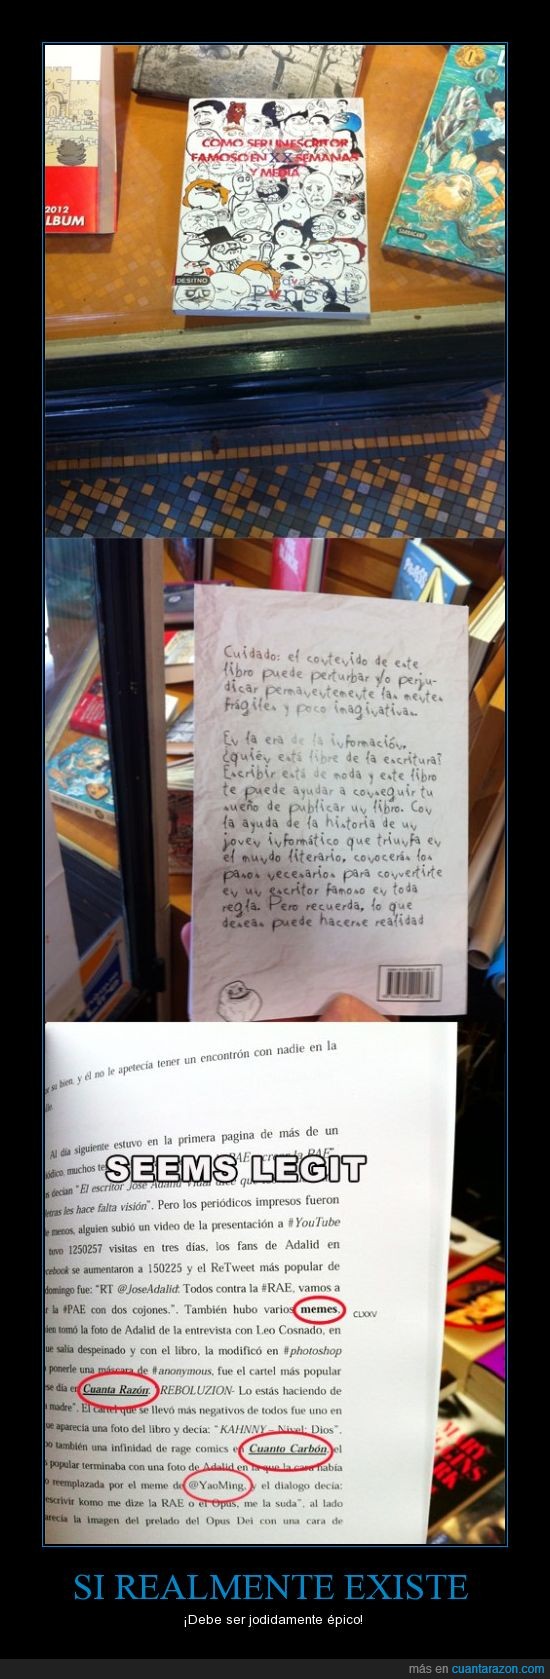 2012
ALBUM
COMO SER UN ESCRITOR
FAMOSO EN XX SEMANAS
Y MEDIA
DESITNO
SARBACANE
Cuidado: el contenido de este
libro puede perturbar y/o perju-
dicar permanentemente las mentes
frágiles y poco imaginativas.
En la era de la información,
¿quién está libre de la escritura?
Escribir está de moda y este libro
te puede ayudar a conseguir tu
sueño de publicar un libro. Con
la ayuda de la historia de un
joven informático que triunfa en
el mundo literario, conocerás los
pasos necesarios para convertirte
en un escritor famoso en toda
regla. Pero recuerda, lo que
deseas puede hacerse realidad
su bien, y él no le apetecía tener un encontrón con nadie en la
Al día siguiente estuvo en la primera pagina de más de un
muchos
SEEMS LEGIT
decían "El escritor José Adalid Vidal dice que
letras les hace falta visión". Pero los periódicos impresos fueron
menos, alguien subió un video de la presentación a #YouTube
tuvo 1250257 visitas en tres días, los fans de Adalid en
se aumentaron a 150225 y el ReTweet más popular de
domingo fue: "RT @JoseAdalid: Todos contra la #RAE, vamos a
la #PAE con dos cojones.". También hubo varios memes, CLXXV
tomó la foto de Adalid de la entrevista con Leo Cosnado, en
que salía despeinado y con el libro, la modificó en #photoshop
ponerle una máscara de #anonymous, fue el cartel más popular
ese día en Cuanta Razón: REBOLUZION- Lo estás haciendo de
madre". El cartel que se llevó más negativos de todos fue uno en
que aparecía una foto del libro y decía: "KAHNNY – Nivel: Dios".
también una infinidad de rage comics en Cuanto Carbón, el
popular terminaba con una foto de Adalid en la que la cara había
reemplazada por el meme de @YaoMing, y el dialogo decía:
escrivir komo me dize la RAE o el Opus, me la suda", al lado
aparecía la imagen del prelado del Opus Dei con una cara de
SI REALMENTE EXISTE
¡Debe ser jodidamente épico!
más en cuantarazon.com